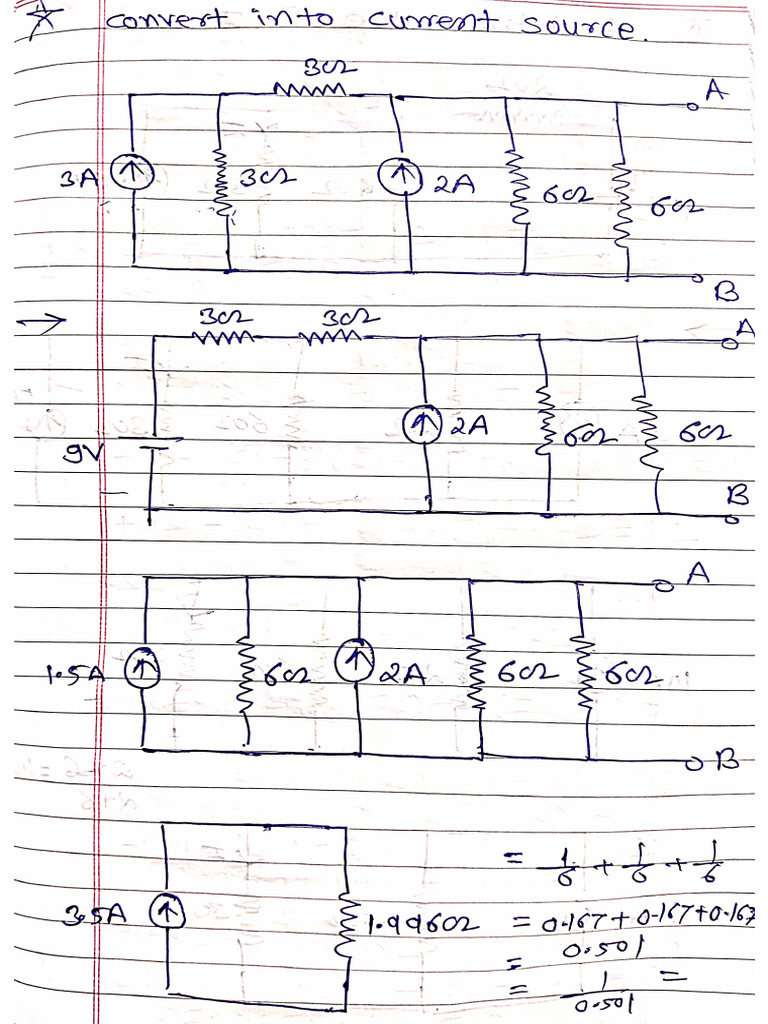 ☆ convert into current source.
3Ω
A
3A 3Ω 2A 6Ω 6Ω
B
→ 3Ω 3Ω
A
9V 2A 6Ω 6Ω
B
A
1.5A 6Ω 2A 6Ω 6Ω
B
= 1/6 + 1/6 + 1/6
3.5A 1.996Ω = 0.167+0.167+0.167
= 0.501
= 1/0.501 =